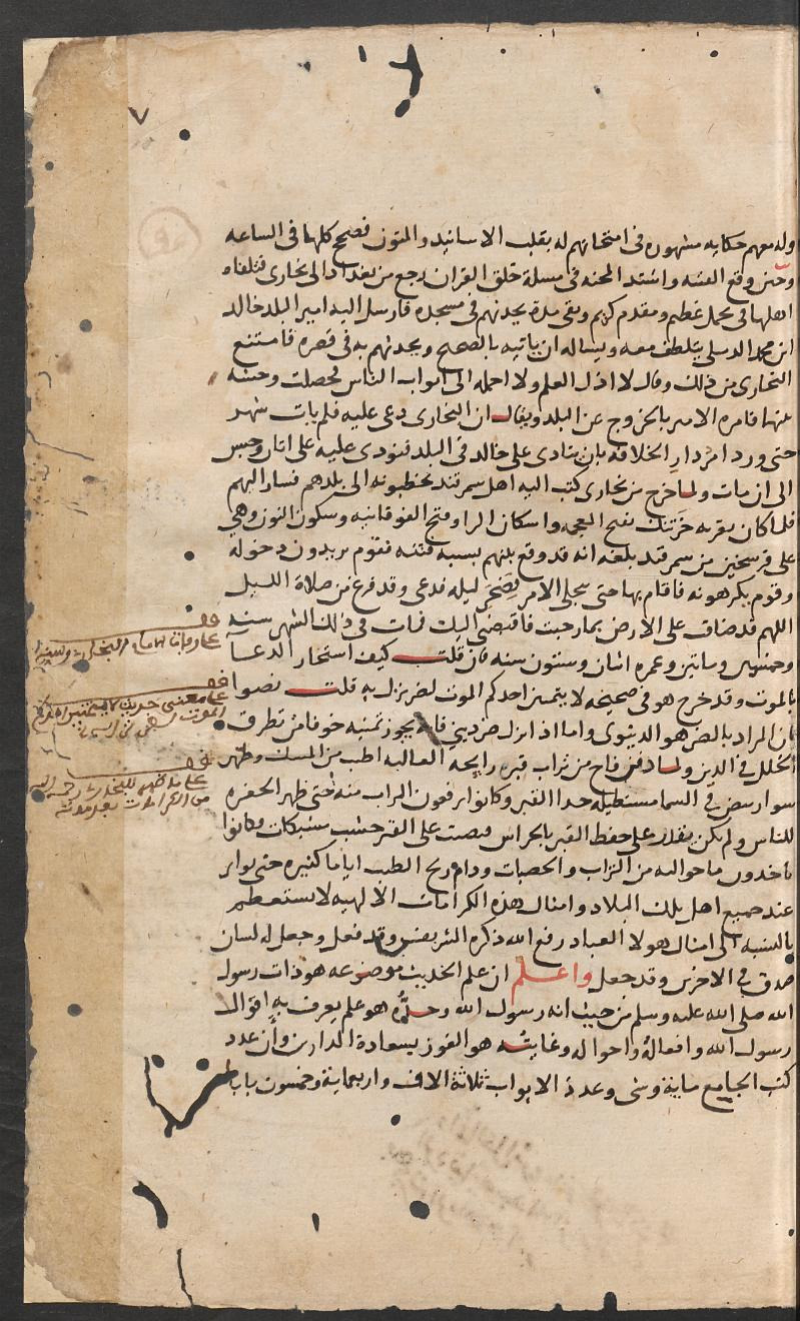 وله معهم حكايه مشهوره فى امتحانهم له بقلب الاسانيد والمتون فصحح كلها فى الساعه
وحين وقع الفتنه واشتد المحنه فى مسلة خلق القران رجع من بغداد الى بخارى فتلقاه
اهلها فى تجمل عظيم ومقدم كريم وبقى مدة يحدثهم فى مسجده فارسل اليه امير البلد خالد
ابن محمد الدهلى يتلطف معه ويساله ان ياتيه بالصحيح ويحدثهم به فى قصره فامتنع
البخارى من ذلك وقال لا اذل العلم ولا احمله الى ابواب الناس فحصلت وحشه
بينهما فامره الامير بالخروج عن البلد ويقال ان البخارى دعى عليه فلم يات شهر
حتى ورد امر دار الخلافه بان ينادى على خالد فى البلد فنودى عليه على اتان وحبس
الى ان مات ولما خرج من بخارى كتب اليه اهل سمرقند يخطبونه الى بلدهم فسار اليهم
فلما كان بقريه خرتنك بفتح المعجمه واسكان الرا وفتح الفوقانيه وسكون النون وهى
على فرسخين من سمرقند بلغه انه قد وقع بينهم بسببه فتنه فقوم يريدون دخوله
وقوم يكرهونه فاقام بها حتى ينجلى الامر فضجر ليله فدعى وقد فرغ من صلاة الليل
اللهم قد ضاقت على الارض بما رحبت فاقبضنى اليك فمات فى ذلك الشهر سنه
وخمسين وماتين وعمره اثنان وستون سنه فان قلت كيف استجار الدعا
بالموت وقد خرج هو فى صحيحه لا يتمنين احدكم الموت لضر نزل به قلت نصوا
بان المراد بالضر هو الدنيوى واما اذا نزل ضر دينى فانه يجوز تمنيه خوفا من تطرق
الخلل فى الدين ولما دفن فاح من تراب قبره رايحه الغاليه اطيب من المسك وظهر
سوار بيض فى السما مستطيله حذا القبر وكانوا يرفعون التراب منه حتى ظهر الحفره
للناس ولم يكن يقدر على حفظ القبر بالحراس فنصبت على القبر خشب مشبكات وكانوا
ياخذون ما حواليه من التراب والحصيات ودام ريح الطيب اياما كثيره حتى تواتر
عند جميع اهل تلك البلاد وامثال هذه الكرامات الالهيه لا يستعظم
بالنسبه الى امثال هولا العباد رفع الله ذكره الشريف وقد فعل وجعل له لسان
صدق فى الاخرين وقد جعل واعلم ان علم الحديث موضوعه هو ذات رسول
الله صلى الله عليه وسلم من حيث انه رسول الله وحده هو علم يعرف به اقوال
رسول الله وافعاله واحواله وغايته هو الفوز بسعادة الدارين وان عدد
كتب الجامع ماية وشى وعدد الابواب ثلاثة الاف واربعماية وخمسون بابا
قف
على وفات الامام البخارى وسنه
قف
على معنى حديث لا يتمنين احدكم
الموت
قف
على ما ظهر للبخارى رحمه الله
من الكرامات بعد موته